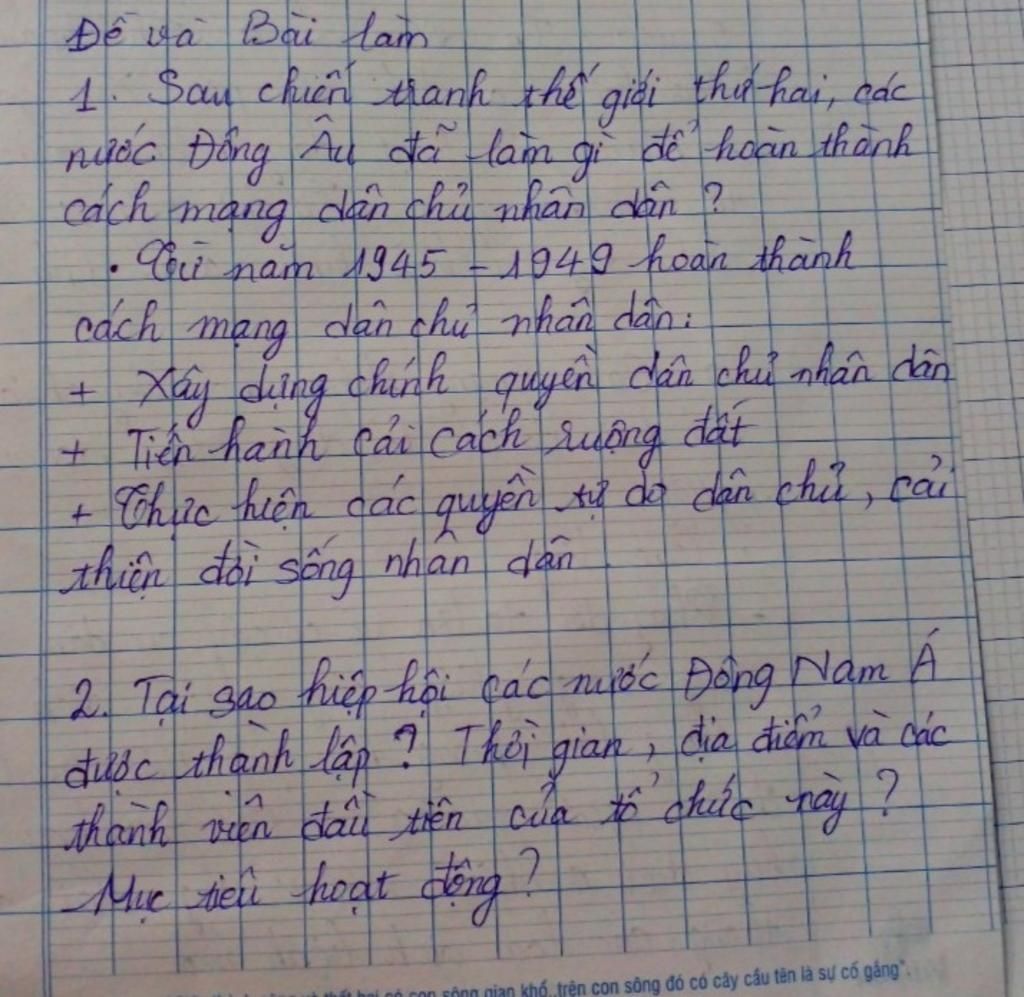 Đề và Bài làm
1. Sau chiến tranh thế giới thứ hai, các
nước Đông Âu đã làm gì để hoàn thành
cách mạng dân chủ nhân dân ?
• Từ năm 1945 - 1949 hoàn thành
cách mạng dân chủ nhân dân:
+ Xây dựng chính quyền dân chủ nhân dân
+ Tiến hành cải cách ruộng đất
+ Thực hiện các quyền tự do dân chủ, cải
thiện đời sống nhân dân
2. Tại sao hiệp hội các nước Đông Nam Á
được thành lập ? Thời gian, địa điểm và các
thành viên đầu tiên của tổ chức này ?
Mục tiêu hoạt động ?
con sông gian khổ, trên con sông đó có cây cầu tên là sự cố gắng".